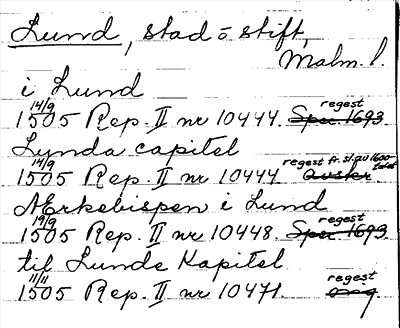 Lund, stad = stift,
Malm. l.
i Lund
14/9 1505 Rep. II nr 10444. Spec 1693 regest
Lynda capitel
14/9 1505 Rep. II nr 10444 avskr. regest fr. sl. av 1600-talet
Ærkebispen i Lund
19/9 1505 Rep. II nr 10448. Spec 1693 regest
til Lunde Kapitel
11/11 1505 Rep. II nr 10471. orig regest